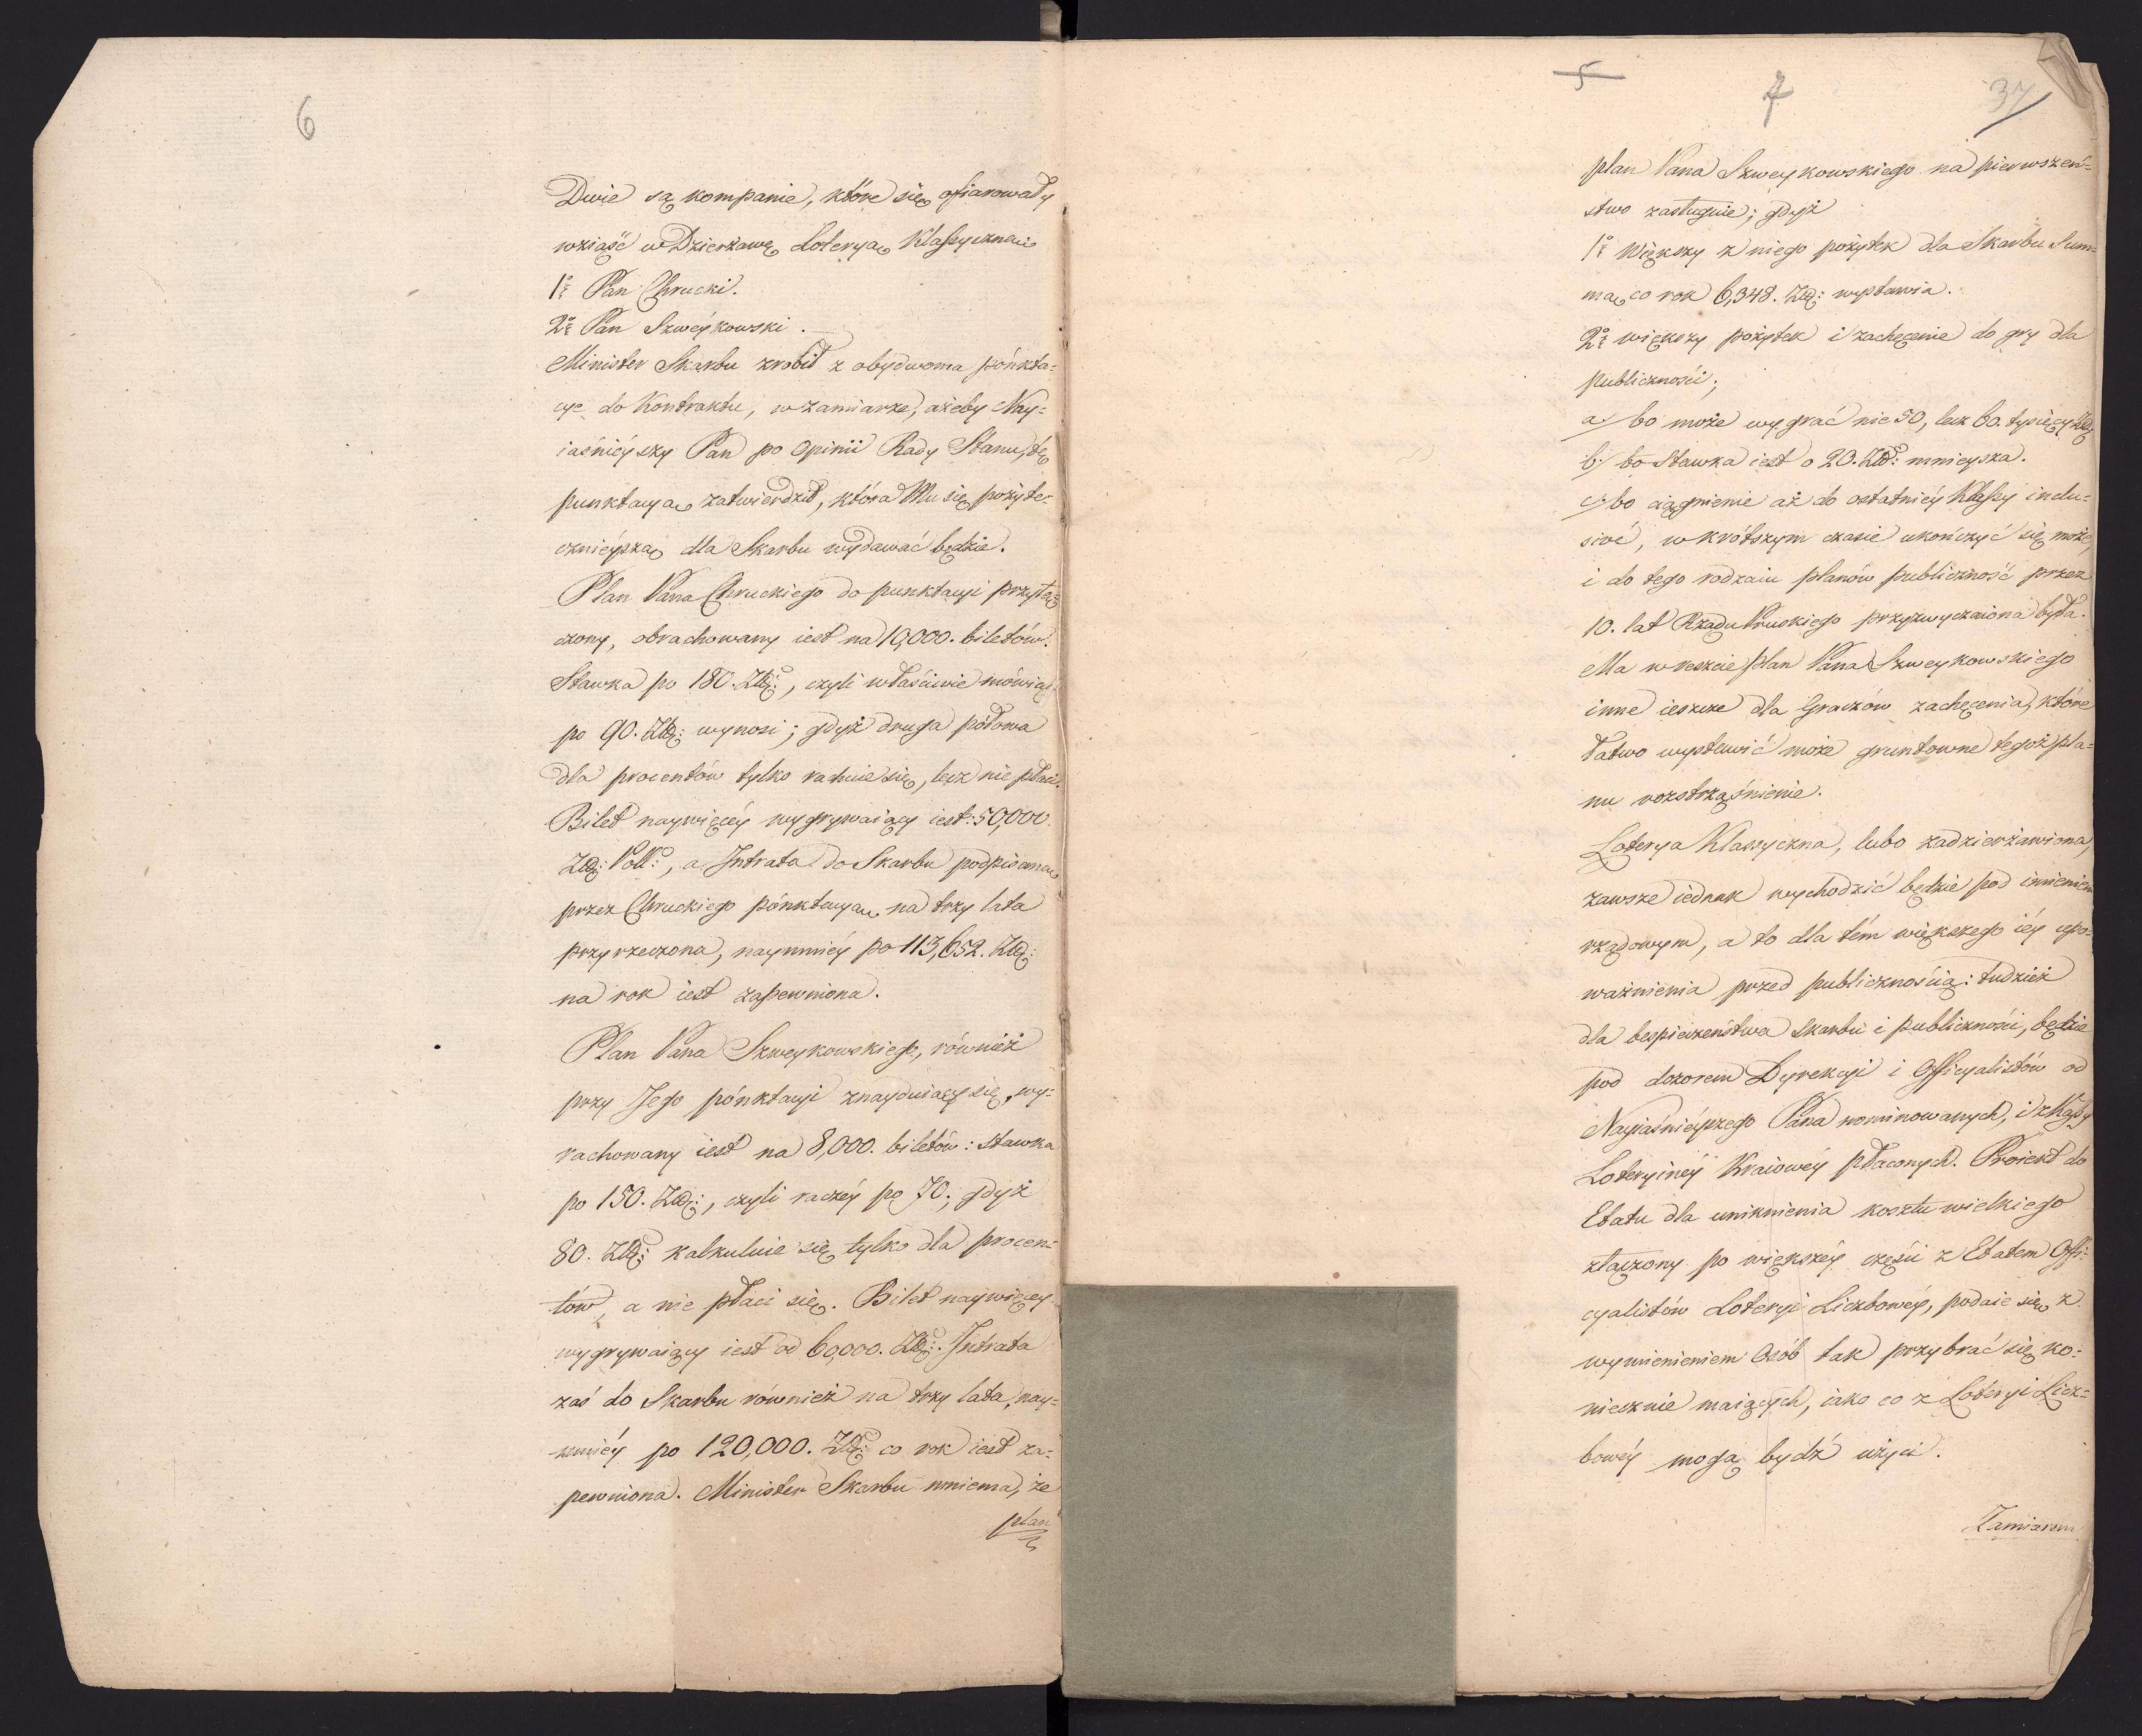 6
Dwie są kompanie, które się ofiarowały
wziąść w Dzierżawę Loteryą Klassyczną:
1º Pan Chrucki.
2º Pan Szweykowski.
Minister Skarbu zrobił z obydwoma pónkta=
cye do Kontraktu, w zamiarze, ażeby Nay=
iaśnieyszy Pan po Opinii Rady Stanu, tę
punktacyą zatwierdził, która Mu się pożyte=
cznieyszą dla Skarbu wydawać będzie.
Plan Pana Chruckiego do punktacyi przyłą=
czony, obrachowany iest na 10,000. biletów.
Stawka po 180. Złł:, czyli właściwie mówiąc
po 90. Złł: wynosi; gdyż druga połowa
dla procentów tylko rachuie się, lecz nie płaci.
Bilet naywięcéy wygrywaiący iest: 50,000.
Złł: Poll:, a Intrata do Skarbu podpisaną
przez Chruckiego pónktacyą na trzy lata
przyrzeczona, naymniéy po 113,652. Złł:
na rok iest zapewniona.
Plan Pana Szweykowskiego, również
przy Jego pónktacyi znayduiący się, wy=
rachowany iest na 8,000. biletów: stawka
po 150. Złł:, czyli raczéy po 70; gdyż
80. Złł: kalkuluie się tylko dla procen=
tów, a nie płaci się. Bilet naywięcey
wygrywaiący iest od 60,000. Złł: Intrata
zaś do Skarbu również na trzy lata, nay=
mniéy po 120,000. Złł: co rok iest za=
pewniona. Minister Skarbu mniema, że
plan
5
7
37
plan Pana Szweykowskiego na pierwszeń=
stwo zasługuie; gdyż
1º Większy z niego pożytek dla Skarbu Sum=
mą co rok 6,348. Złł: wystawia.
2º większy pożytek i zachęcenie do gry dla
publiczności;
a/ bo może wygrać nie 50, lecz 60. tysięcy Złł
b/ bo Stawka iest o 20. Złł: mnieysza.
c/ bo ciągnienie aż do ostatniéy Klassy inclu=
sivé, w krótszym czasie ukończyć się może,
i do tego rodzaiu planów publiczność przez
10. lat Rządu Pruskiego przyzwyczaiona była.
Ma w reszcie plan Pana Szweykowskiego
inne ieszcze dla Graczów zachęcenia, które
łatwo wystawić może gruntowne tegoż pla=
nu rozstrząśnienie.
Loterya Klassyczna, lubo zadzierżawiona,
zawsze iednak wychodzić będzie pod imieniem
rządowym, a to dla tém większego iéy upo=
ważnienia przed publicznością: tudzież
dla bespieczeństwa Skarbu i publiczności, będzie
pod dozorem Dyrekcyi i Officyalistów od
Nayiaśnieyszego Pana nominowanych, i z Kassy
Loteryinéy Kraiowéy płaconych. Proiekt do
Etatu dla uniknienia kosztu wielkiego
złączony po większéy części z Etatem Offi=
cyalistów Loteryi Liczbowéy, podaie się z
wymienieniem Osób tak przybrać się ko=
niecznie maiących, iako co z Loteryi Licz=
bowéy mogą bydź użyci.
Zamiarem